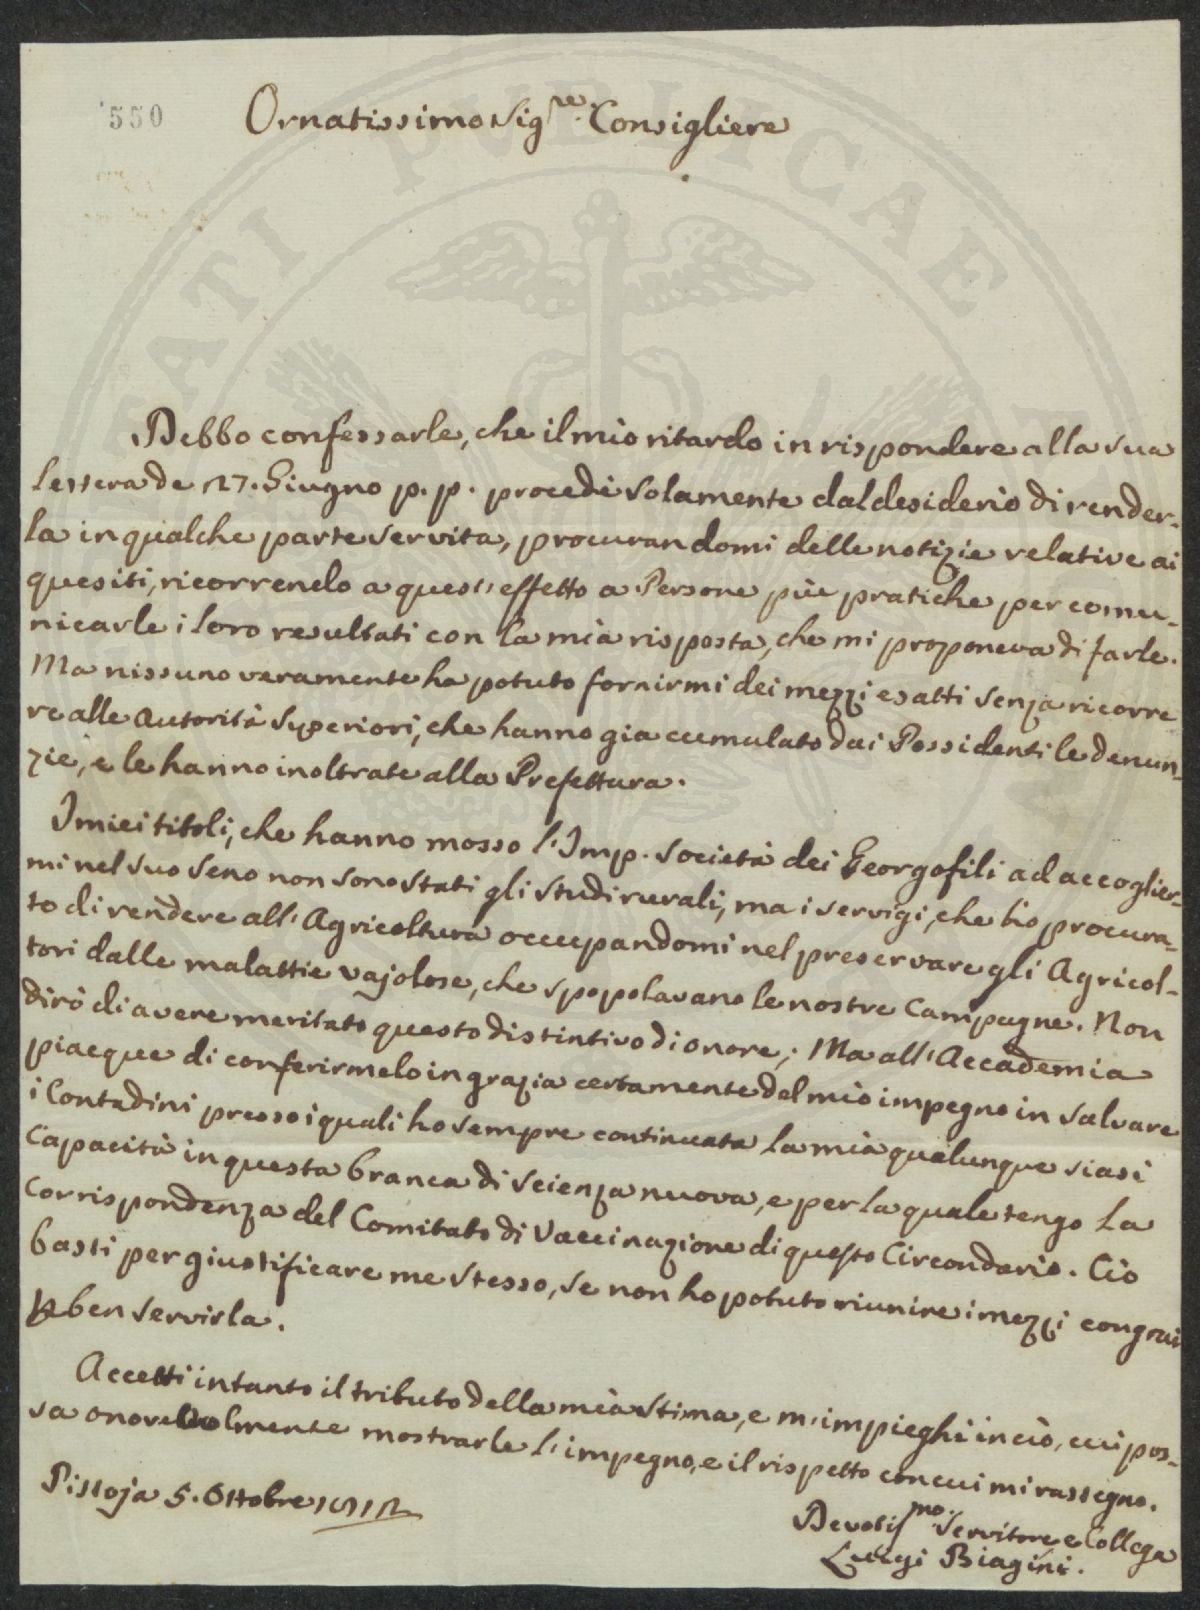 550
Ornatissimo Sig.re Consigliere
Debbo confessarle, che il mio ritardo in rispondere alla sua
Lettera de 27. Giugno p. p. procedè solamente dal desiderio di render-
la in qualche parte servita, procurandomi delle notizie relative ai
quesiti, ricorrendo a quest' effetto a Persone più pratiche per comu-
nicarle i loro resultati con la mia risposta, che mi proponeva di farle.
Ma nissuno veramente ha potuto fornirmi dei mezzi esatti senza ricorre
re alle Autorità Superiori, che hanno gia cumulato dai Possidenti le denun-
zie, e le hanno inoltrate alla Prefettura.
I miei titoli, che hanno mosso l'Imp. Società dei Georgofili ad accoglier-
mi nel suo seno non sono stati gli studi rurali, ma i servigi, che ho procura-
to di rendere all'Agricoltura occupandomi nel preservare gli Agricol-
tori dalle malattie vajolose, che spopolavano le nostre Campagne. Non
dirò di avere meritato questo distintivo di onore; Ma all'Accademia
piacque di conferirmelo in grazia certamente del mio impegno in salvare
i Contadini presso i quali ho sempre continuata la mia qualunque siasi
Capacità in questa branca di Scienza nuova, e per la quale tengo la
Corrispondenza del Comitato di Vaccinazione di questo Circondario. Ciò
basti per giustificare me stesso, se non ho potuto riunire i mezzi congrui
p ben servirla.
Accetti intanto il tributo della mia stima, e m'impieghi in ciò, cui pos-
sa onorevolmente mostrarle l'impegno, e il rispetto con cui mi rassegno.
Pistoja 5. Ottobre 1812
Devotis.mo Servitore e Collega
Luigi Biagini.